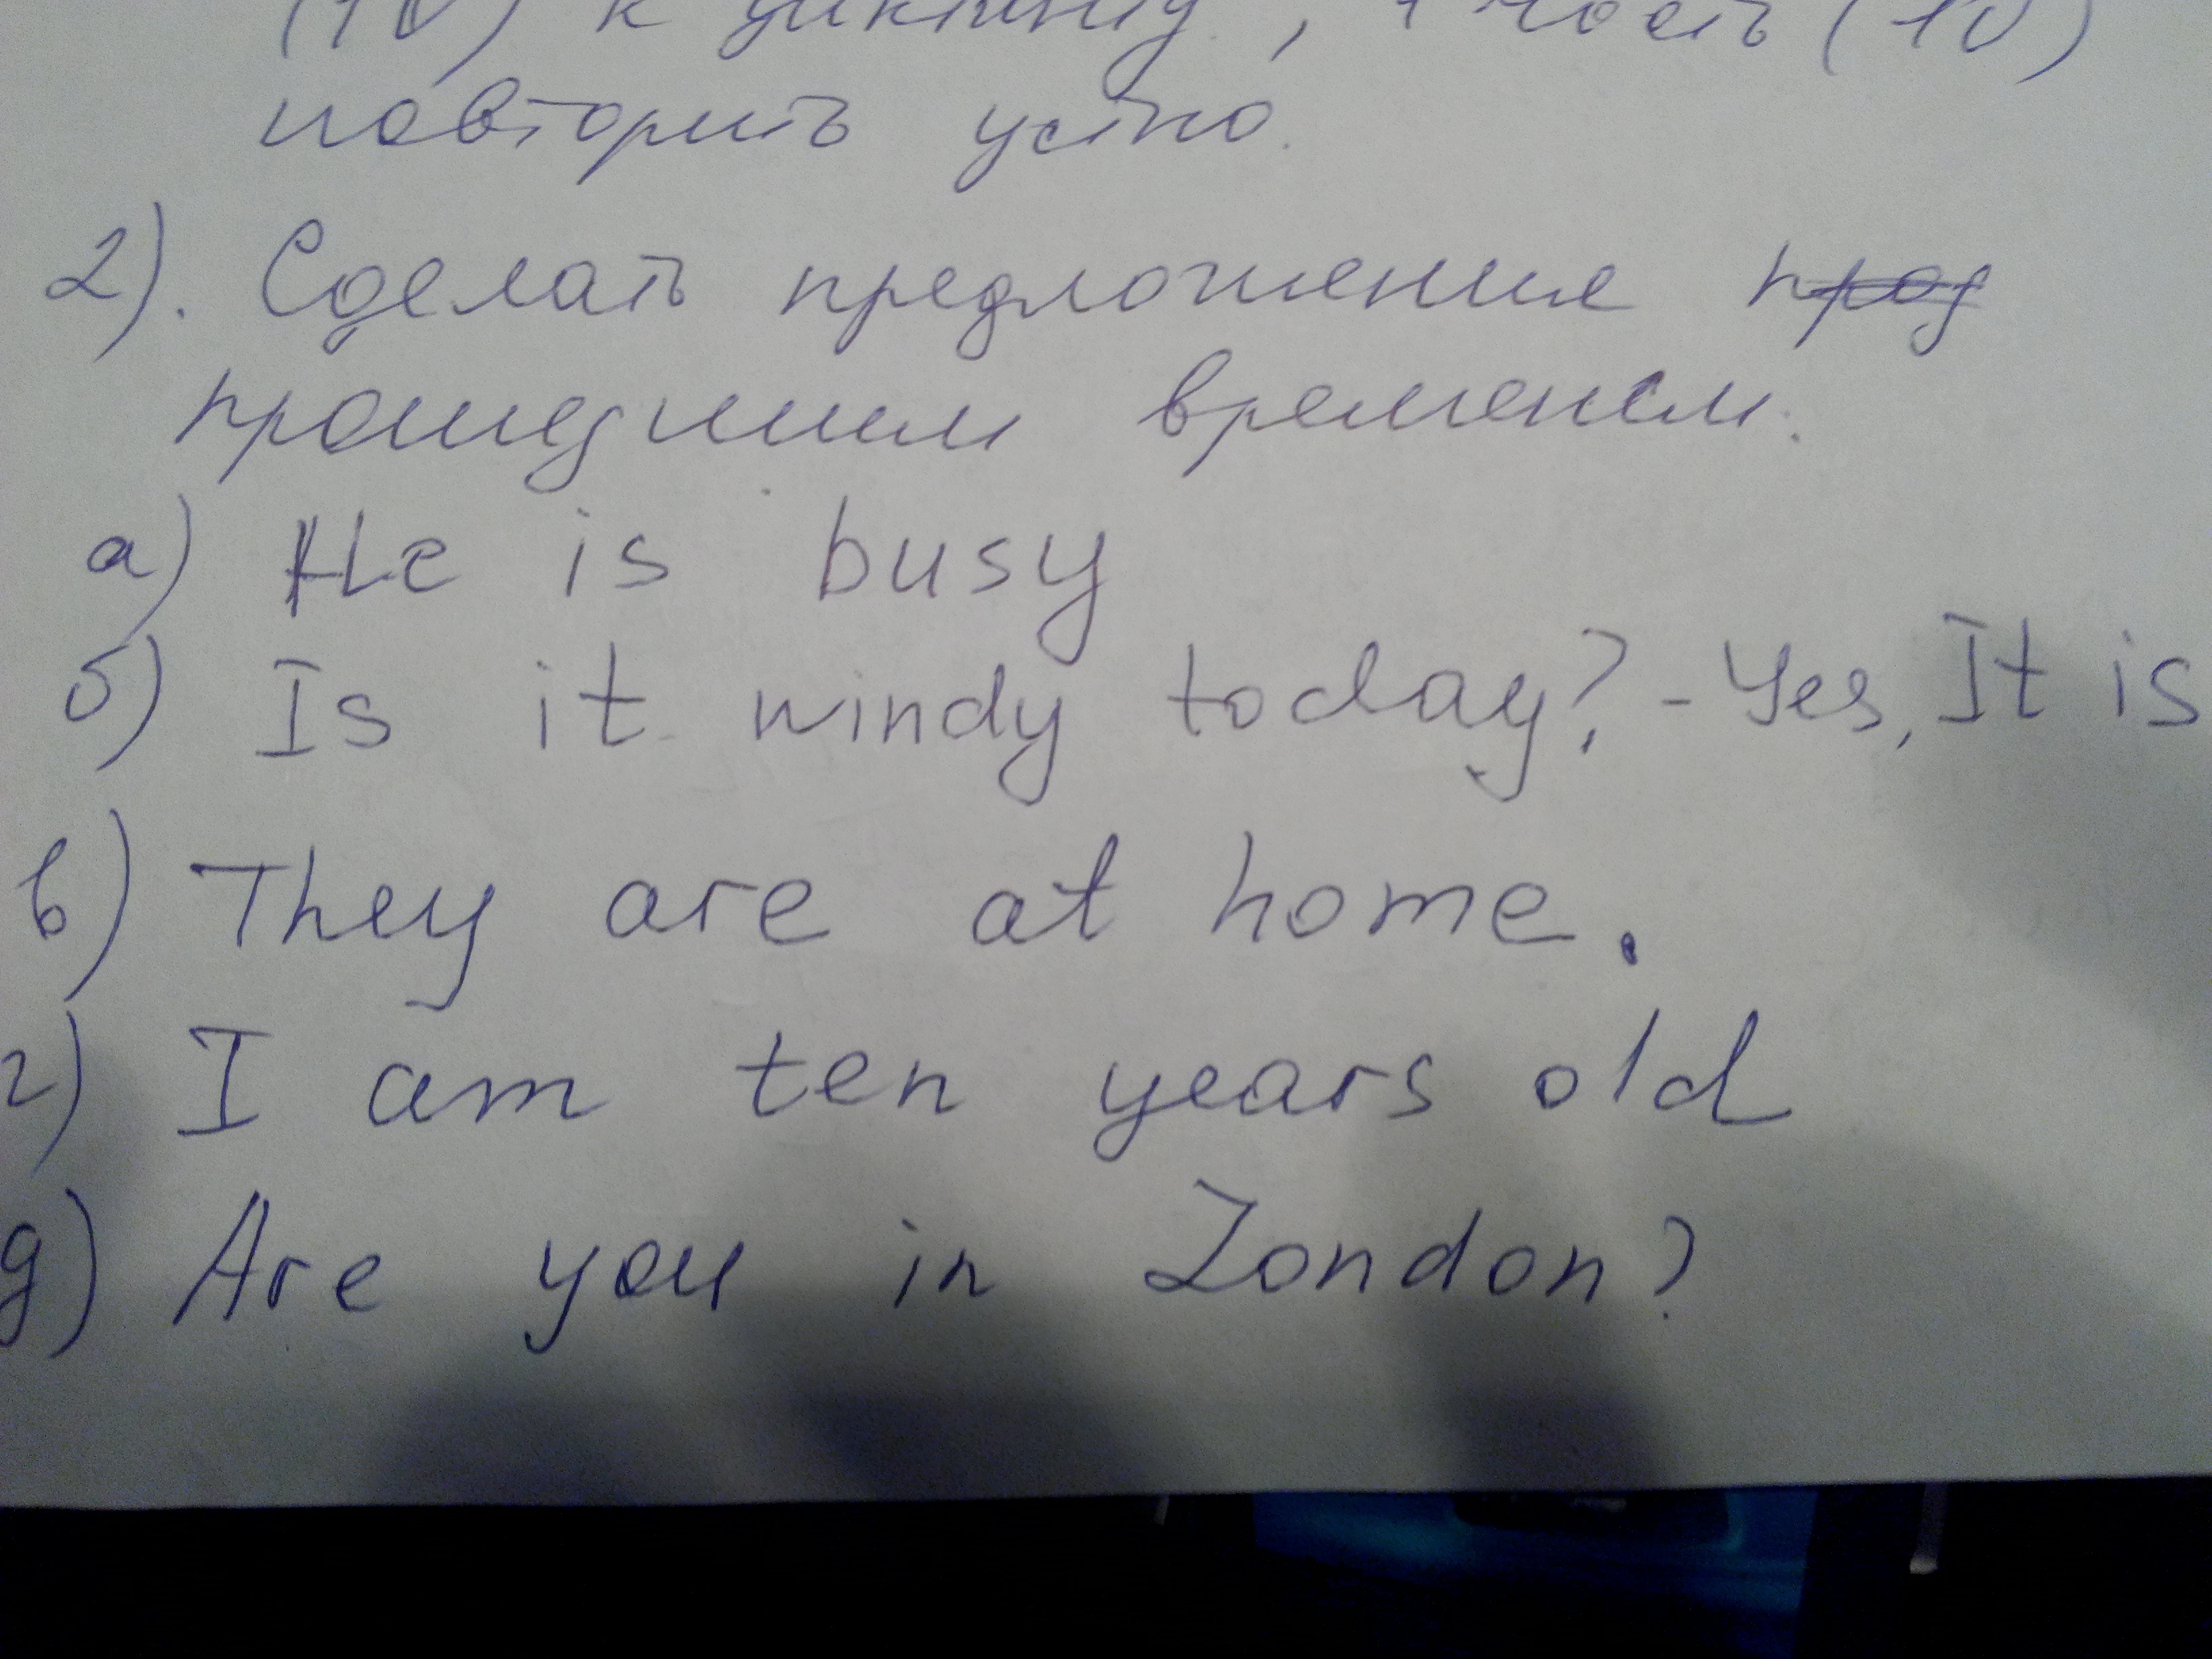 (10) к диктанту, 1 часть (10)
повторить устно.
2). Сделать предложение
прошедшим временем.
а) He is busy
б) Is it windy today? - Yes, It is
в) They are at home.
г) I am ten years old
д) Are you in London?